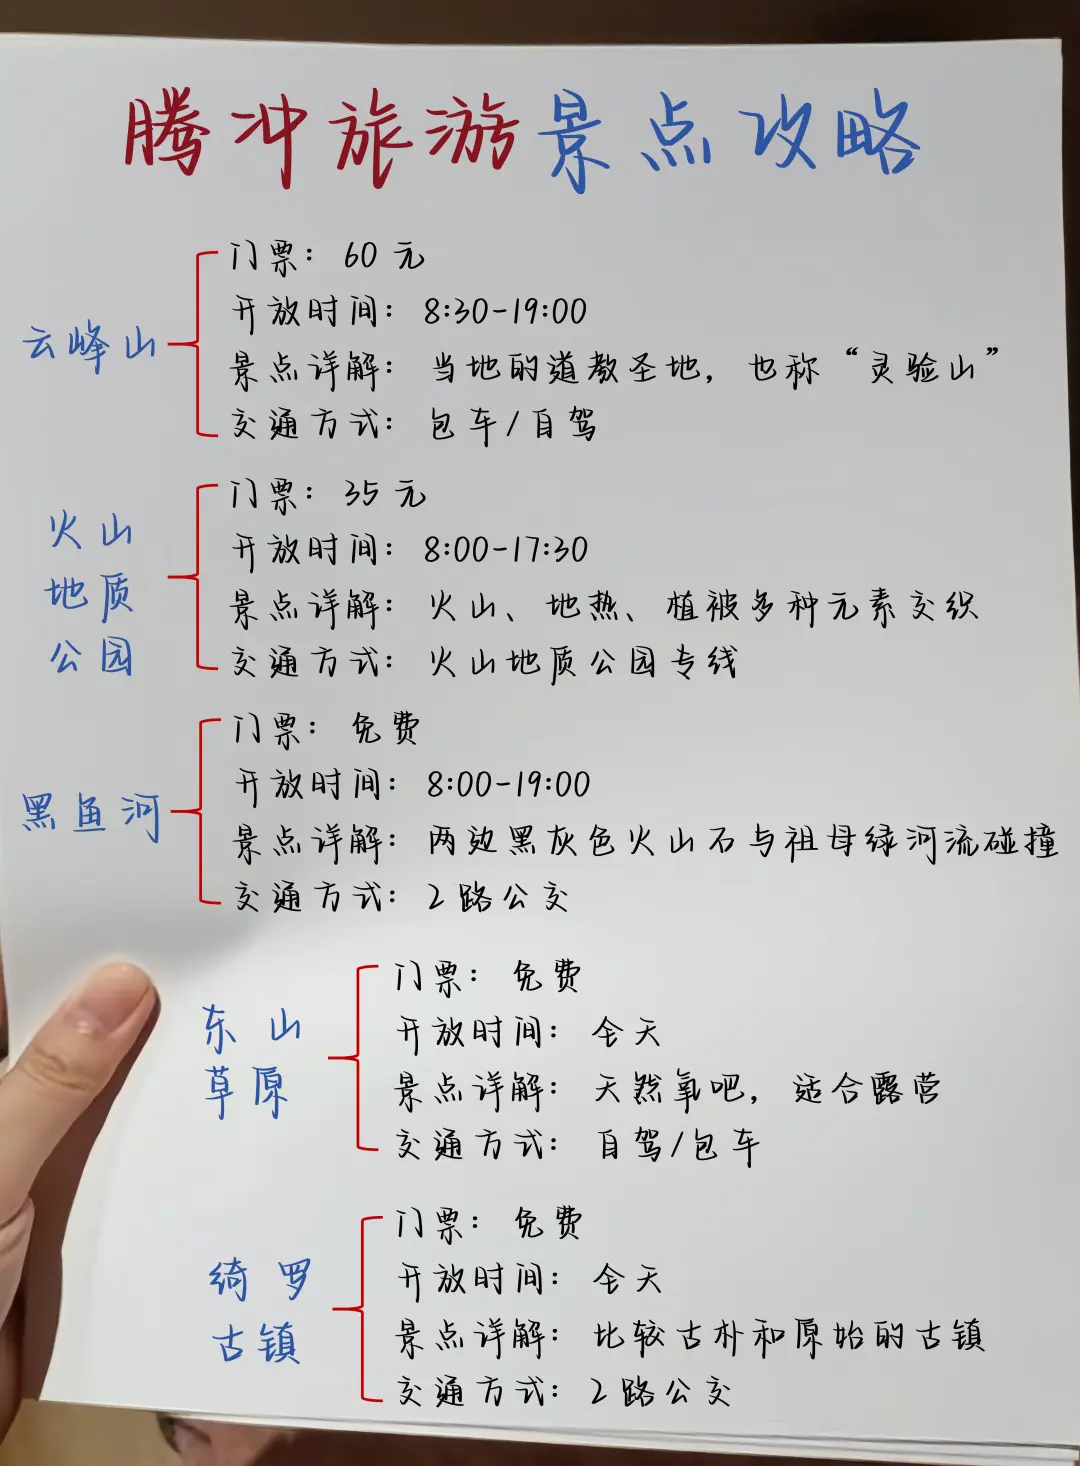 腾冲旅游景点攻略
云峰山
门票：60元
开放时间：8:30-19:00
景点详解：当地的道教圣地，也称“灵验山”
交通方式：包车/自驾
火山
地质
公园
门票：35元
开放时间：8:00-17:30
景点详解：火山、地热、植被多种元素交织
交通方式：火山地质公园专线
黑鱼河
门票：免费
开放时间：8:00-19:00
景点详解：两边黑灰色火山石与祖母绿河流碰撞
交通方式：2路公交
东山
草原
门票：免费
开放时间：全天
景点详解：天然氧吧，适合露营
交通方式：自驾/包车
绮罗
古镇
门票：免费
开放时间：全天
景点详解：比较古朴和原始的古镇
交通方式：2路公交